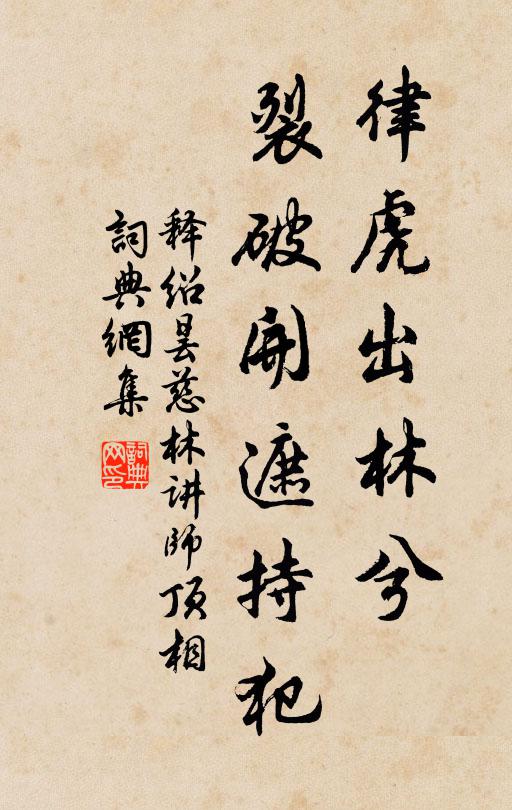 律虎出林兮
裂破開遮持犯
释绍昙慈林讲師顶相
詞典網集
詞典網印